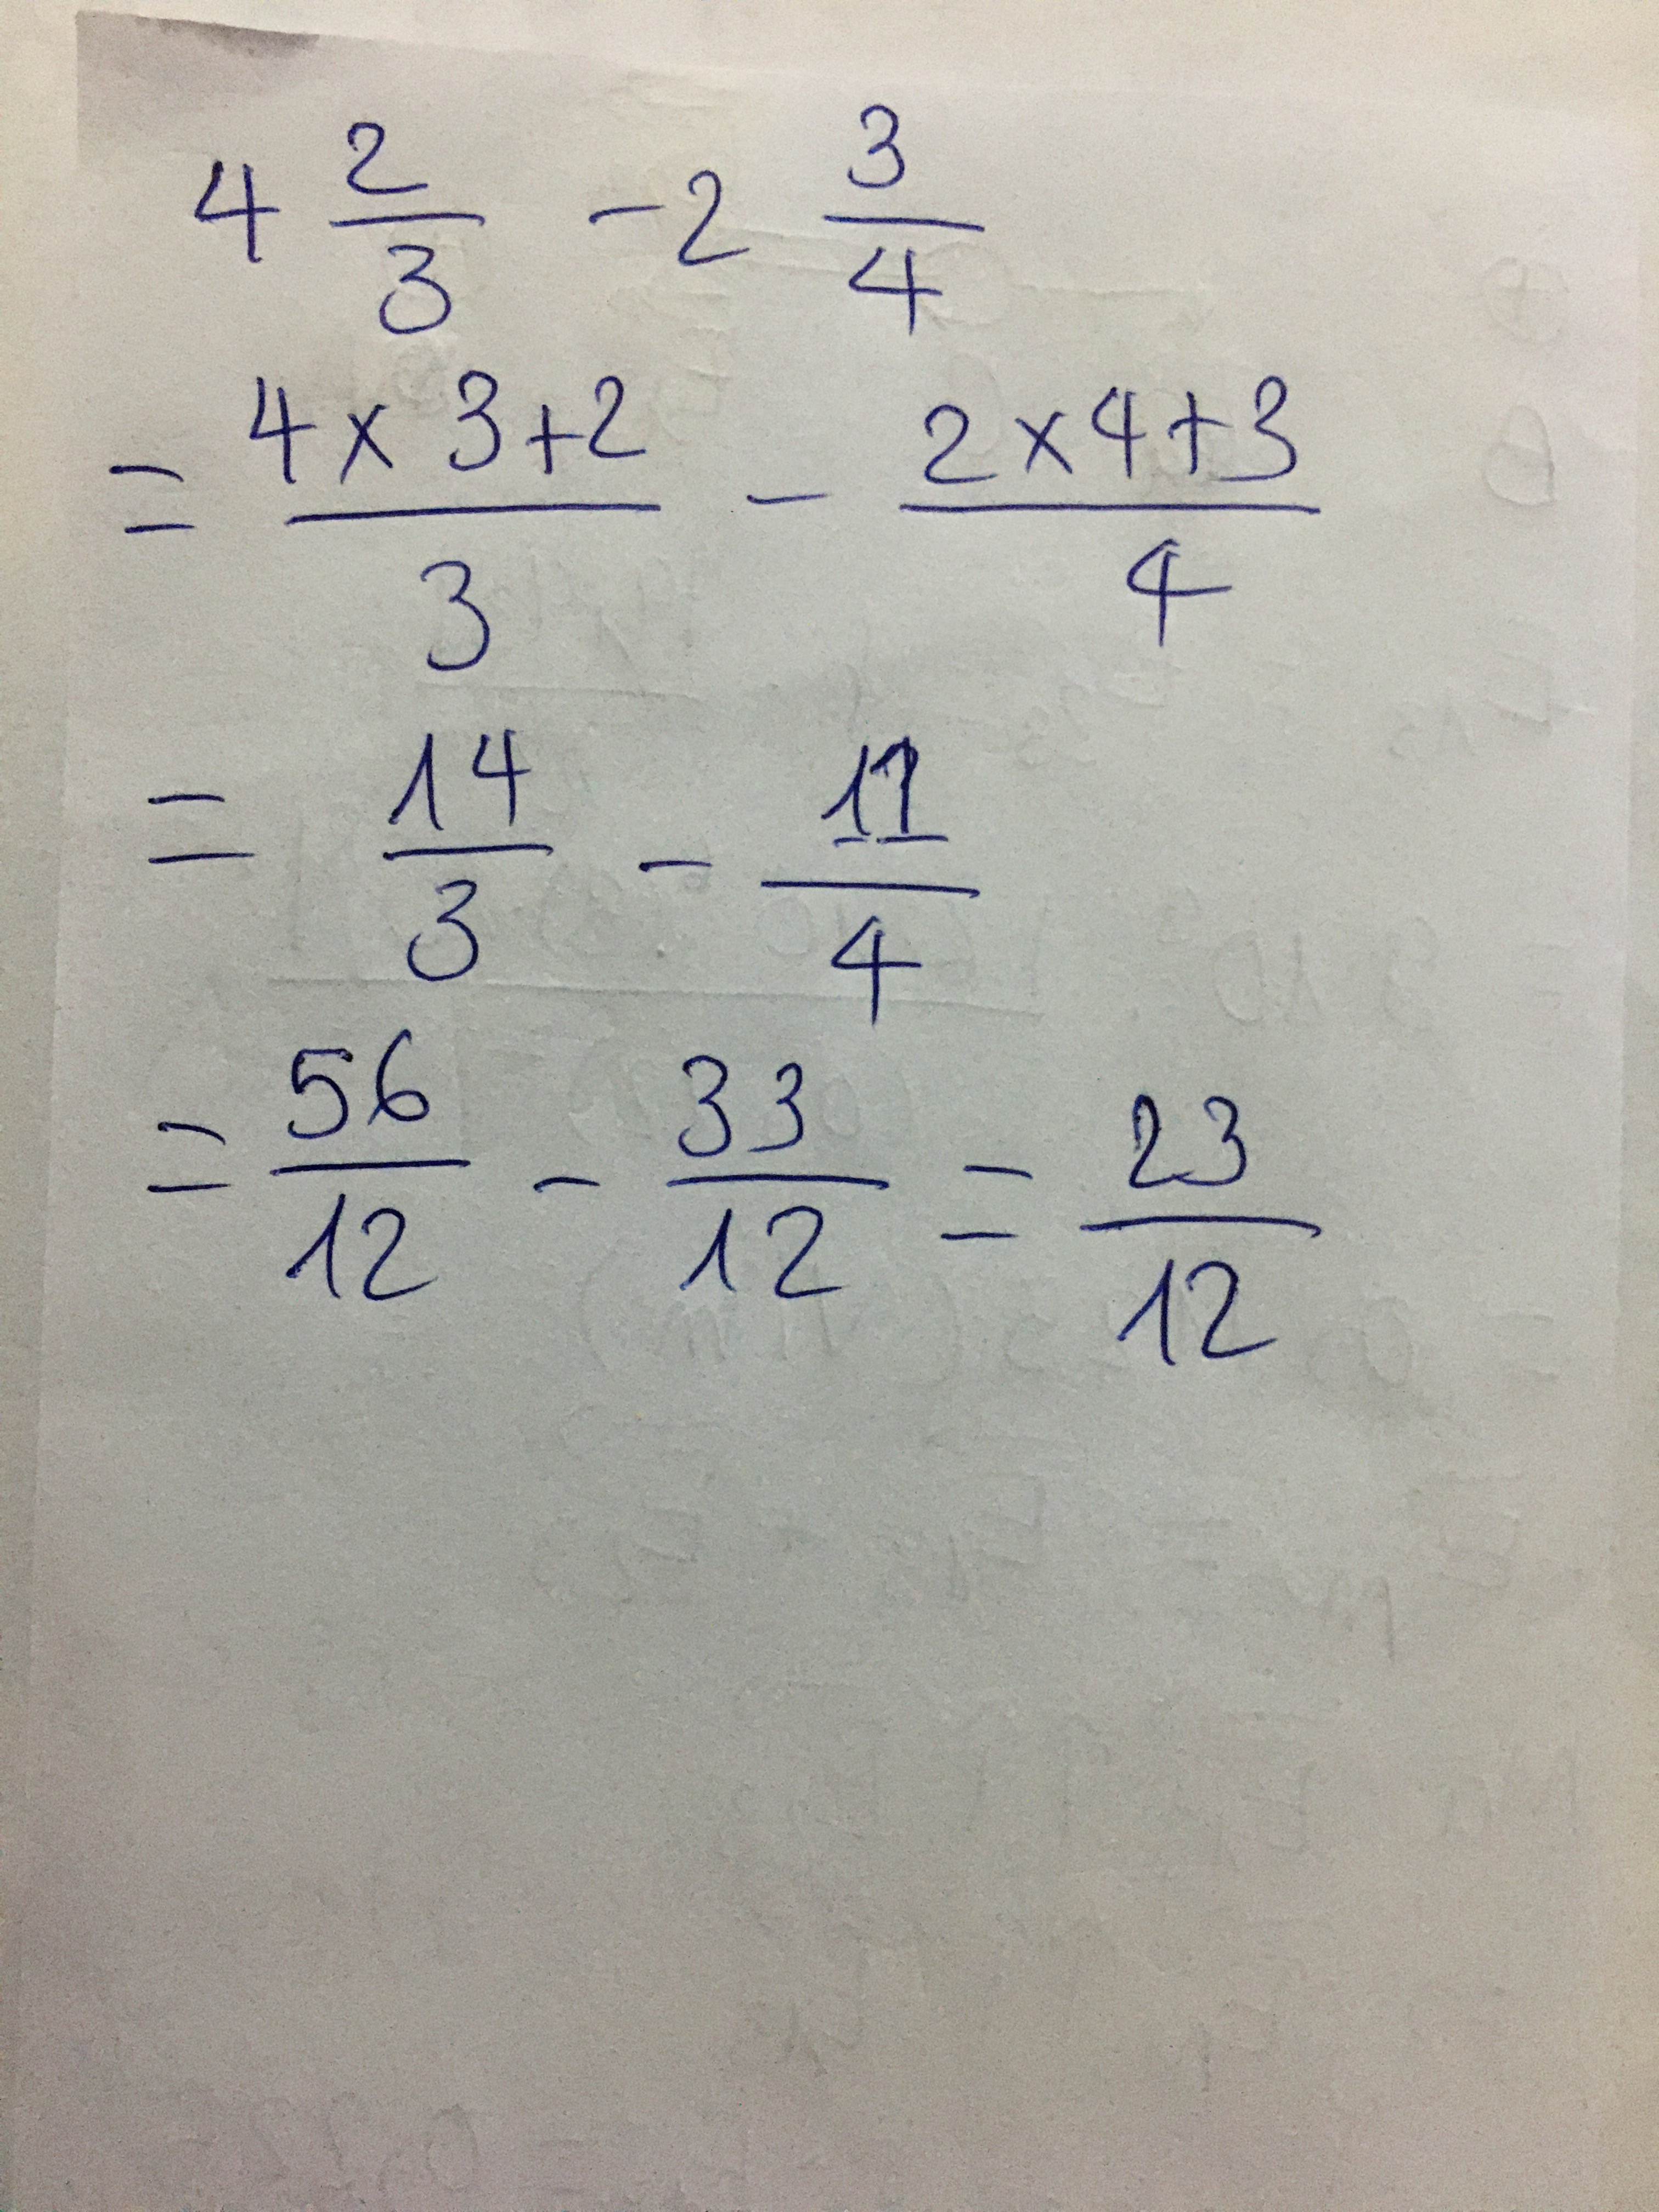 4 2/3 - 2 3/4
= (4 x 3 + 2)/3 - (2 x 4 + 3)/4
= 14/3 - 11/4
= 56/12 - 33/12 = 23/12